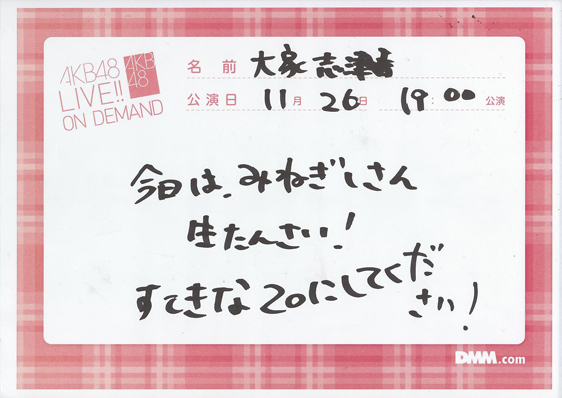 AKB48
LIVE!!
ON DEMAND
AKB
48
名前 大家志津香
公演日 11月26日 19:00 公演
今日は、みねぎしさん
生たんさい!
すてきな20にしてくだ
さい!
DMM.com